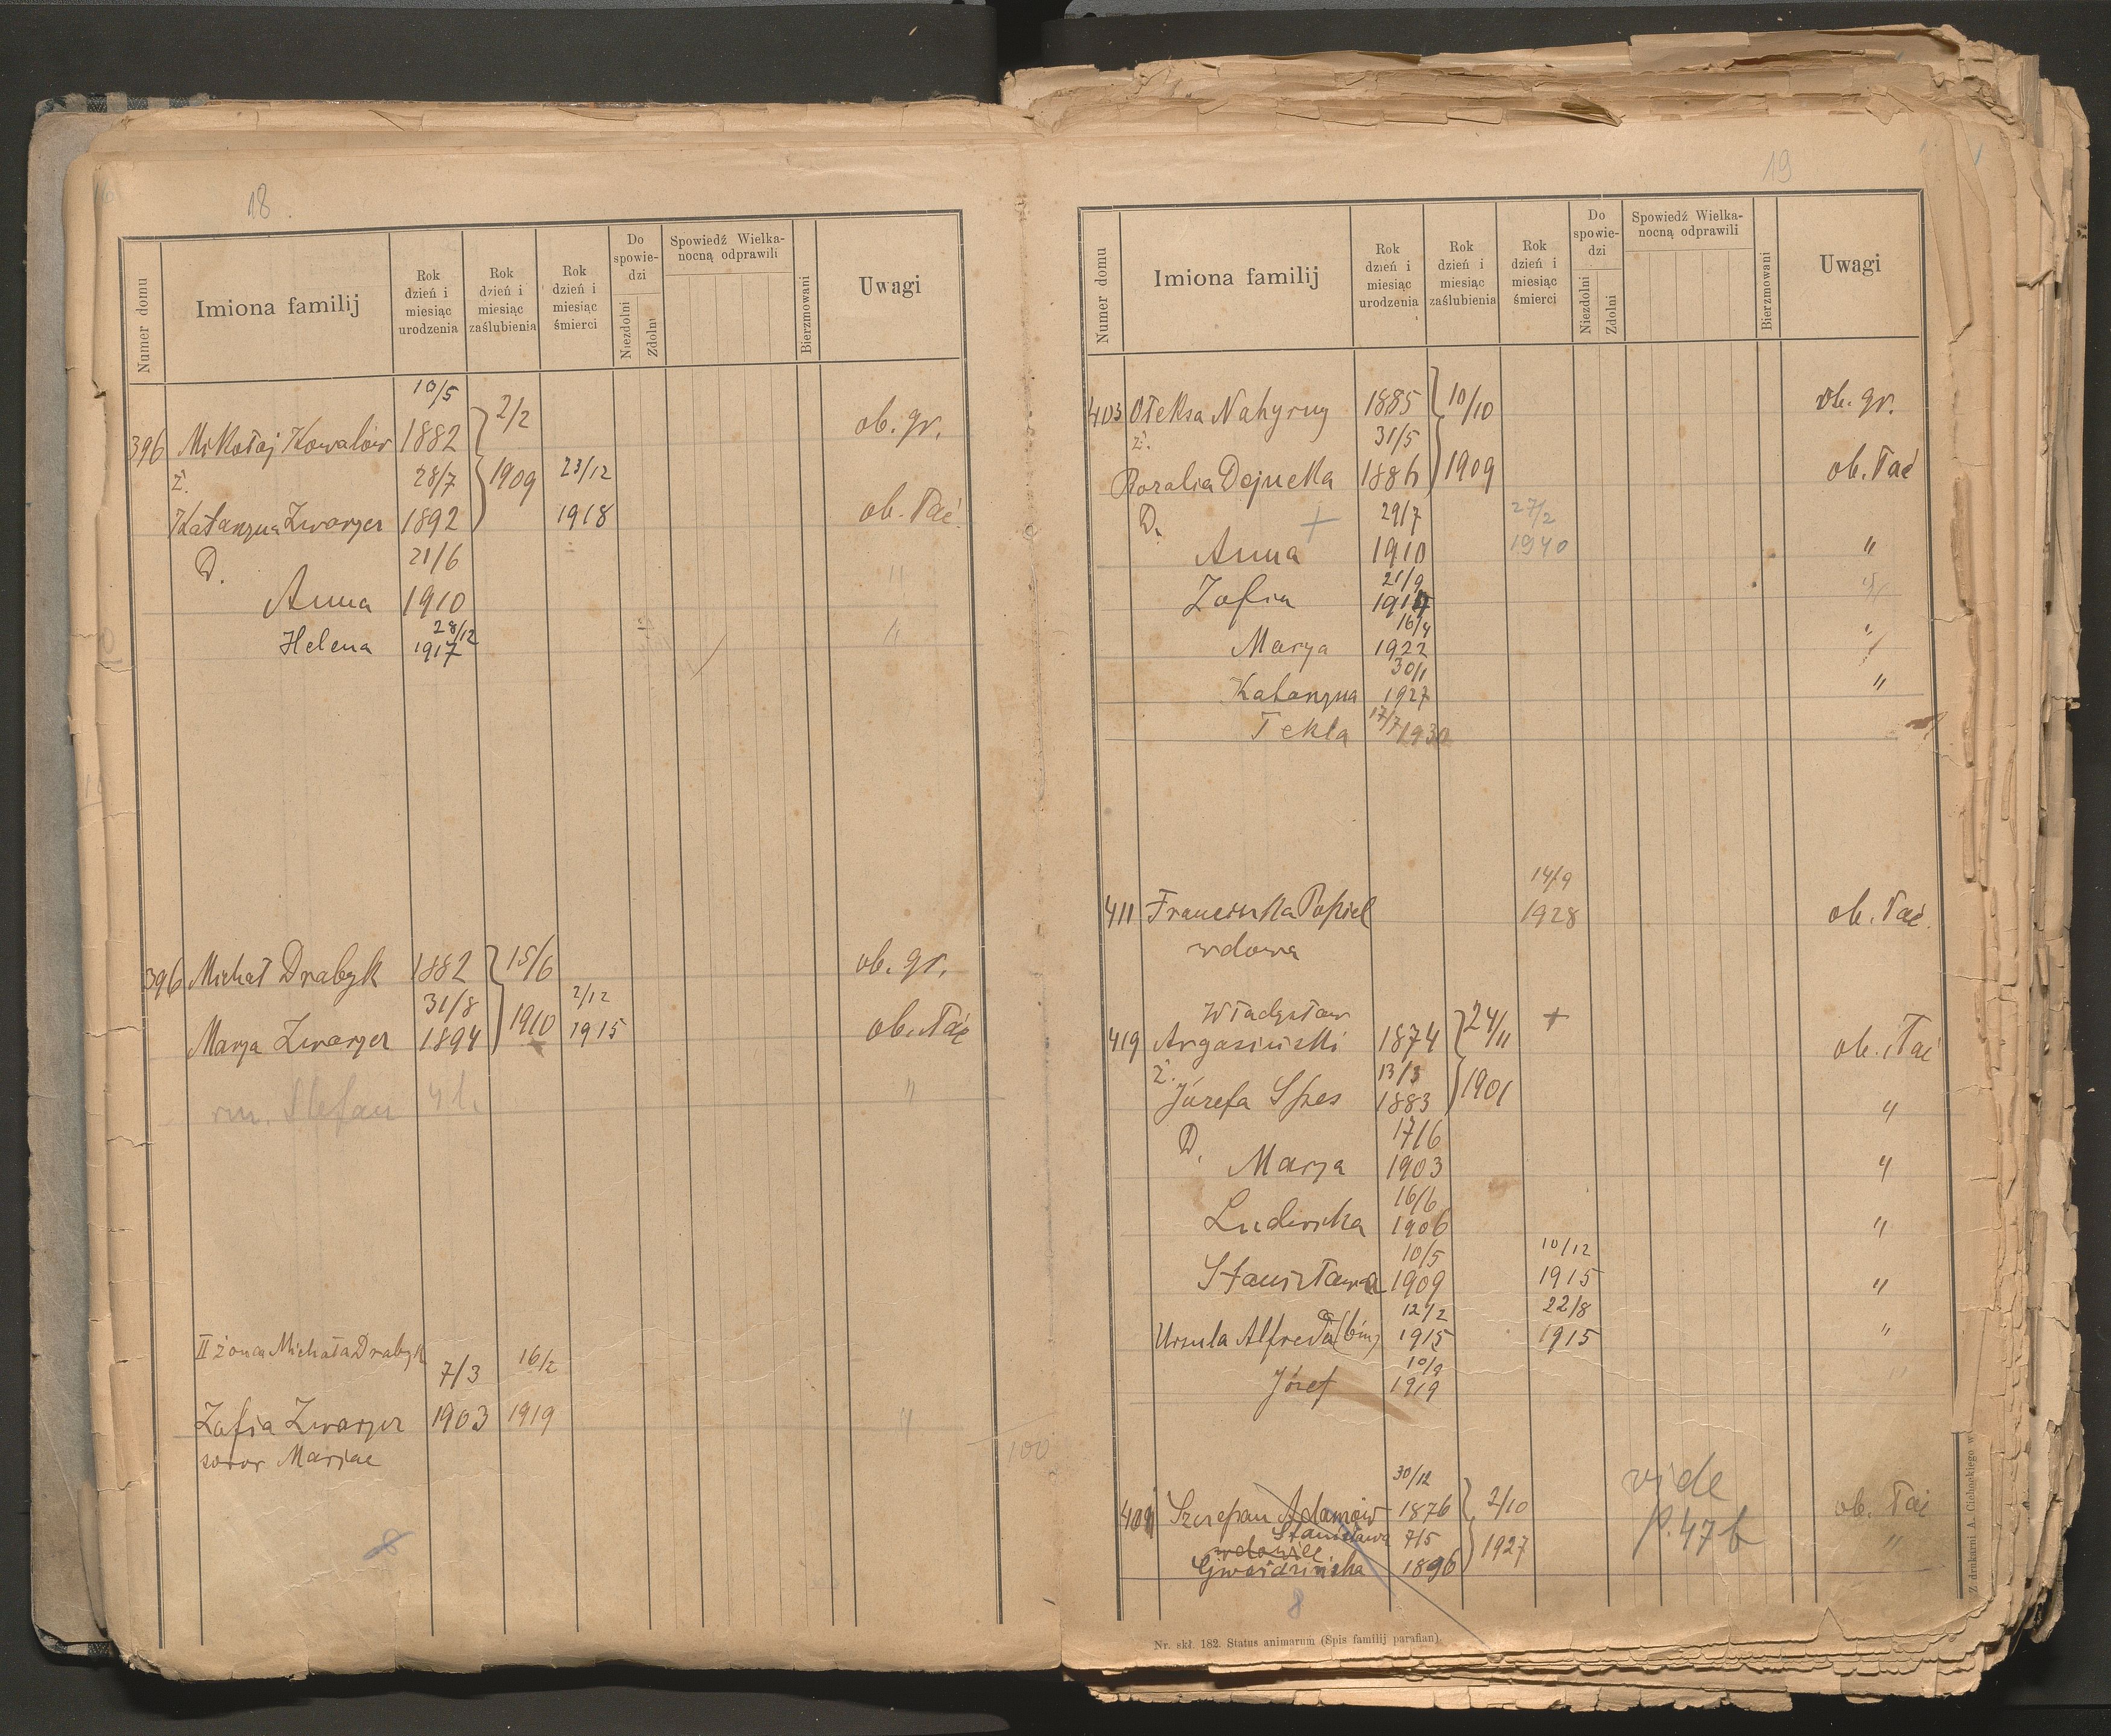 18.
Numer domu
Imiona familij
Rok dzień i miesiąc urodzenia
Rok dzień i miesiąc zaślubienia
Rok dzień i miesiąc śmierci
Do spowiedzi
Niezdolni
Zdolni
Spowiedź Wielkanocną odprawili
Bierzmowani
Uwagi
10/5 2/2
396 Mikołaj Kowalów 1882 ob. gr.
ż. 28/7 1909 23/12
Katarzyna Zwarycz 1892 1918 ob. łać.
D. 21/6
Anna 1910 "
28/12
Helena 1917 "
396 Michał Drabyk 1882 15/6 ob. gr.
31/8 2/12
Marya Zwarycz 1894 1910 1915 ob. łać
Stefan "
II żona Michała Drabyk
7/3 16/2
Zofia Zwarycz 1903 1919 "
soror Mariae
8
100
19
Numer domu
Imiona familij
Rok dzień i miesiąc urodzenia
Rok dzień i miesiąc zaślubienia
Rok dzień i miesiąc śmierci
Do spowiedzi
Niezdolni
Zdolni
Spowiedź Wielkanocną odprawili
Bierzmowani
Uwagi
403 Ołeksa Nahyrny 1885 10/10 ob. gr.
ż. 31/5
Rozalia 1886 1909 ob. łać
D. + 29/7 27/2
Anna 1910 1940 "
21/9
Zofia "
16/4
Marya 1922 "
30/1
Katarzyna 1927 "
Tekla 17/7 1930
14/9
411 Franciszka Popiel 1928 ob. łać.
wdowa
Władysław
419 Argasiński 1874 24/11 + ob. łać
ż. 13/3
Józefa Spes 1883 1901 "
D. 17/6
Marya 1903 "
16/6
Ludwika 1906 "
10/5 10/12
Stanisława 1909 1915 "
12/2 22/8
Ursula Alfreda (bin.) 1915 1915 "
10/9
Józef 1919 "
30/12
409 Szczepan Adamów 1876 2/10 vide ob. łać
Stanisława 7/5 p. 47 b "
wdowiec 1927
Gwoździńska 1896
8
Nr. skł. 182. Status animarum (Spis familij parafian).
Z drukarni A. Cichockiego w